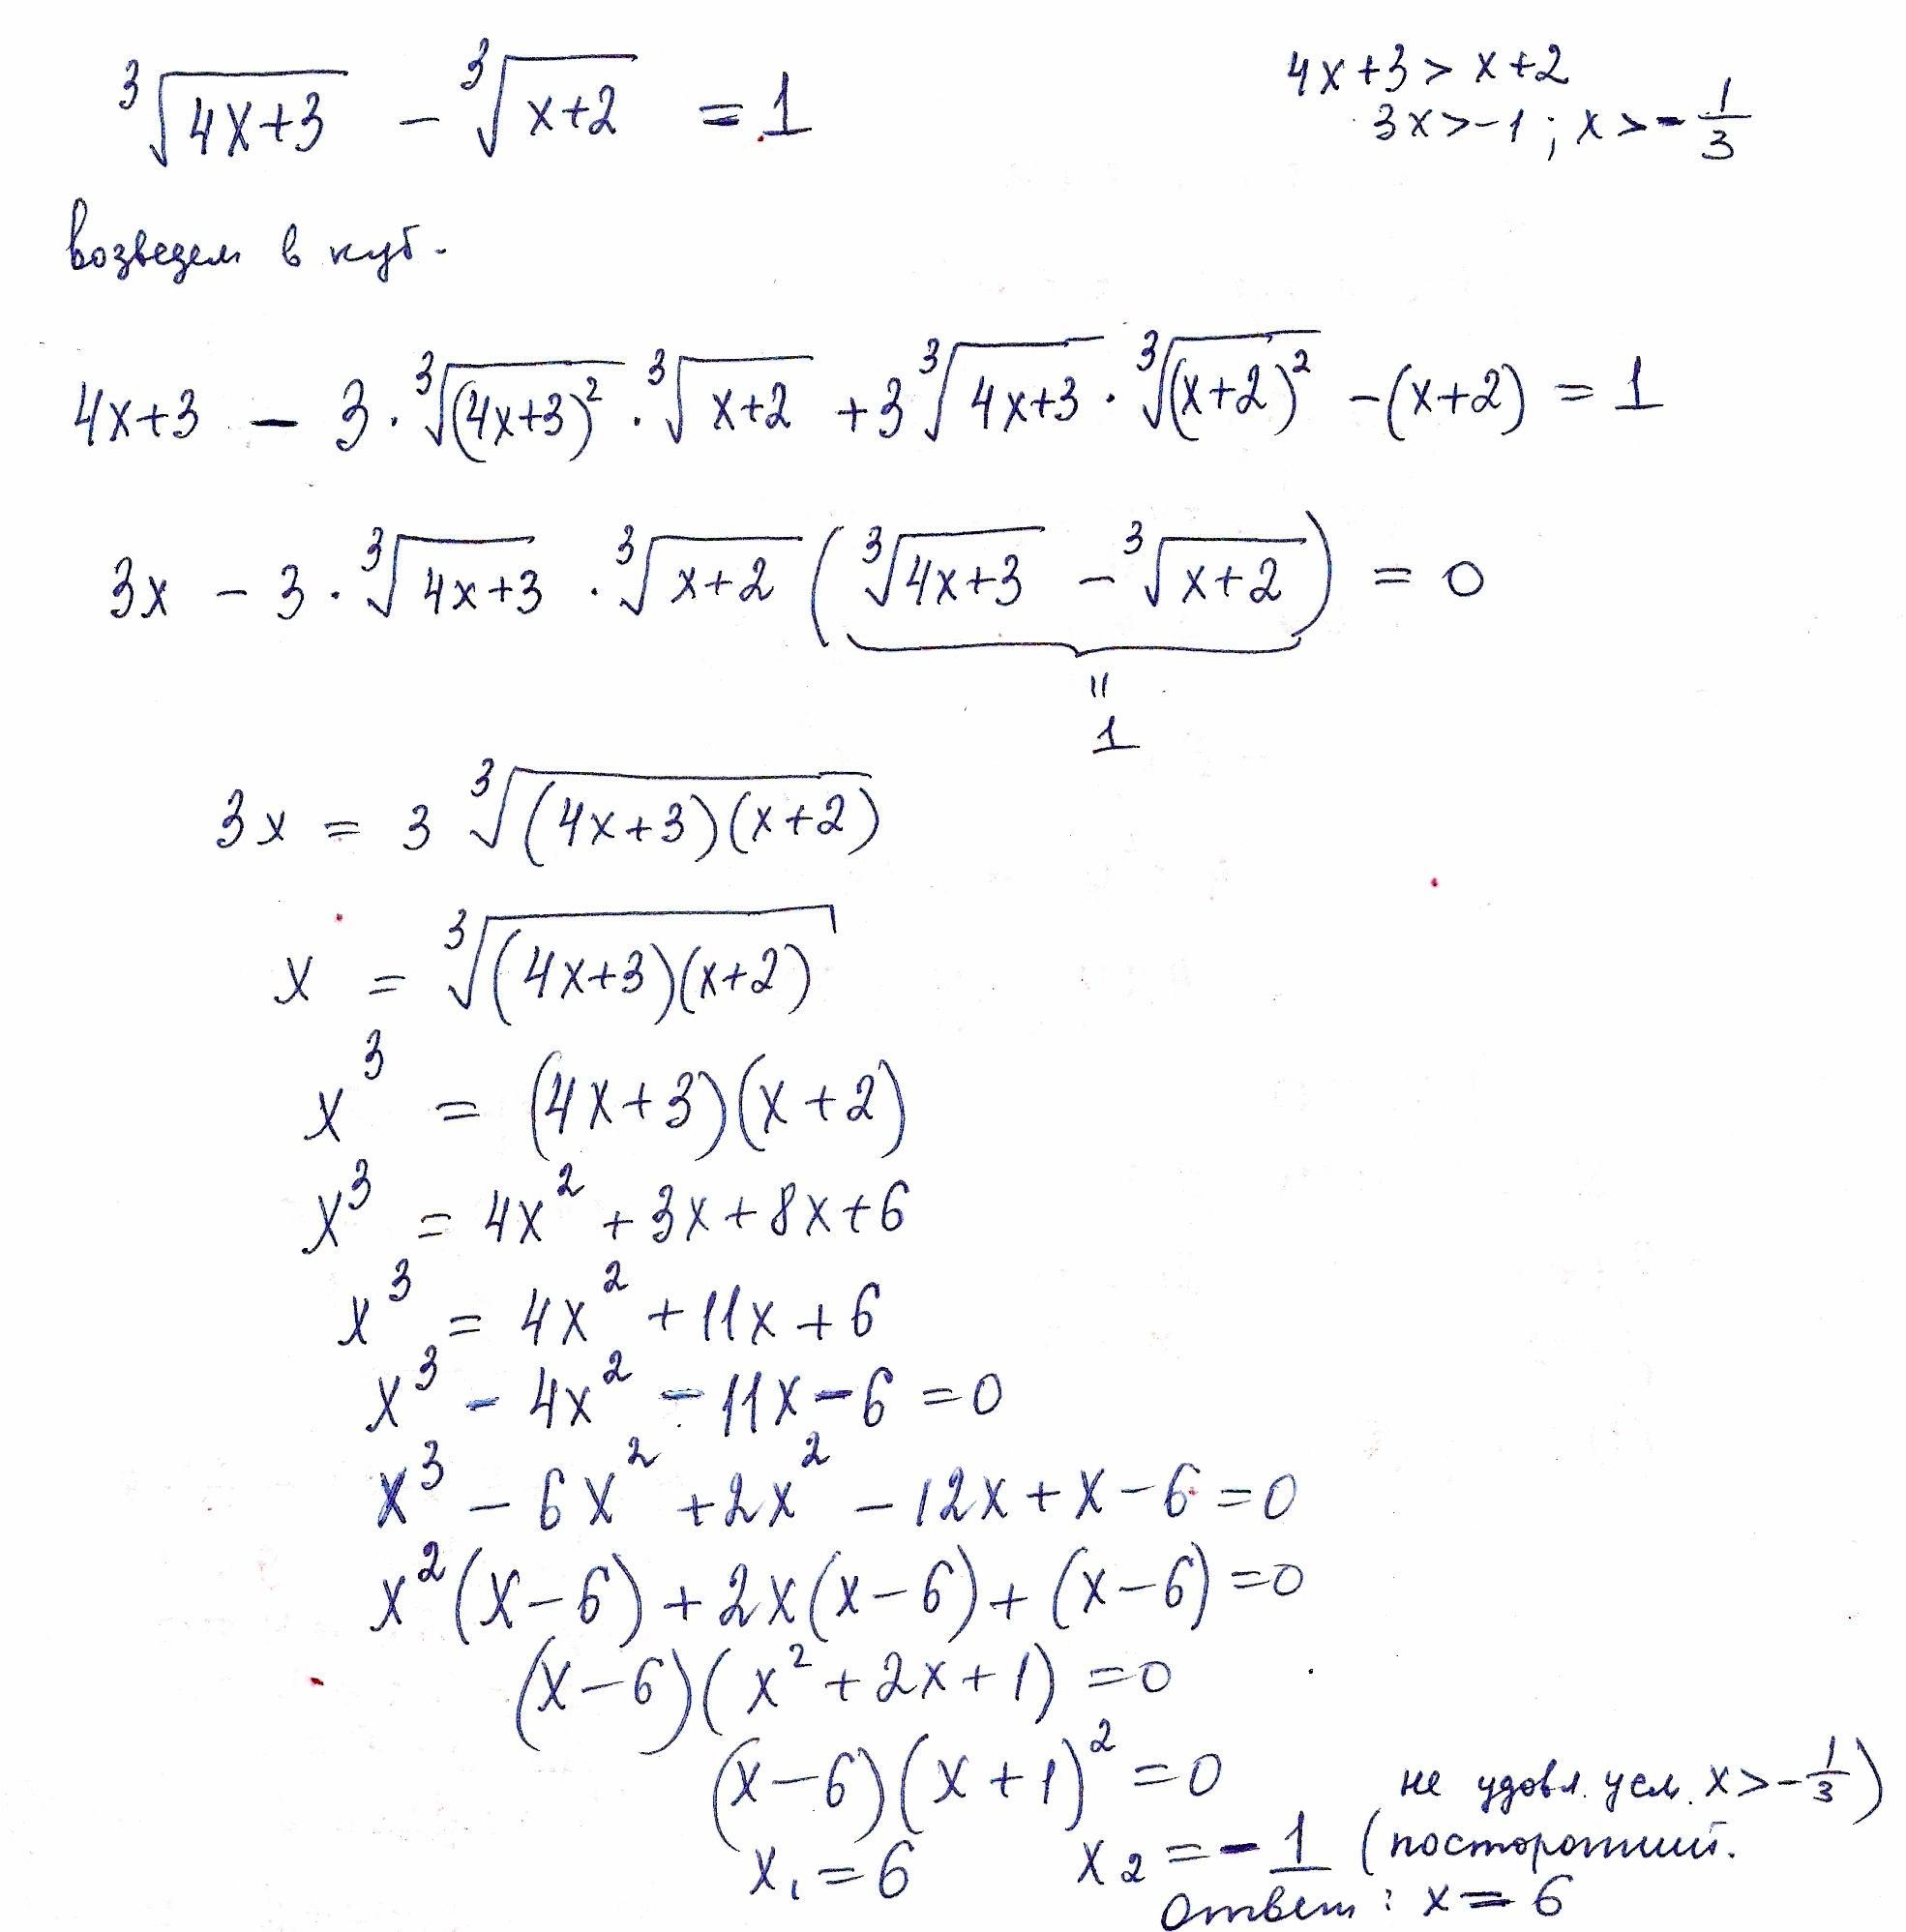 ∛(4x+3) − ∛(x+2) = 1
4x+3 > x+2
3x > −1 ; x > −1/3
возведем в куб.
4x+3 − 3·∛((4x+3)²)·∛(x+2) + 3∛(4x+3)·∛((x+2)²) − (x+2) = 1
3x − 3·∛(4x+3)·∛(x+2) (∛(4x+3) − ∛(x+2)) = 0
=
1
3x = 3∛((4x+3)(x+2))
x = ∛((4x+3)(x+2))
x³ = (4x+3)(x+2)
x³ = 4x² + 3x + 8x + 6
x³ = 4x² + 11x + 6
x³ − 4x² − 11x − 6 = 0
x³ − 6x² + 2x² − 12x + x − 6 = 0
x²(x−6) + 2x(x−6) + (x−6) = 0
(x−6)(x² + 2x + 1) = 0
(x−6)(x+1)² = 0
x₁ = 6 x₂ = −1 (посторонний.
не удовл. усл. x > −1/3)
Ответ: x = 6